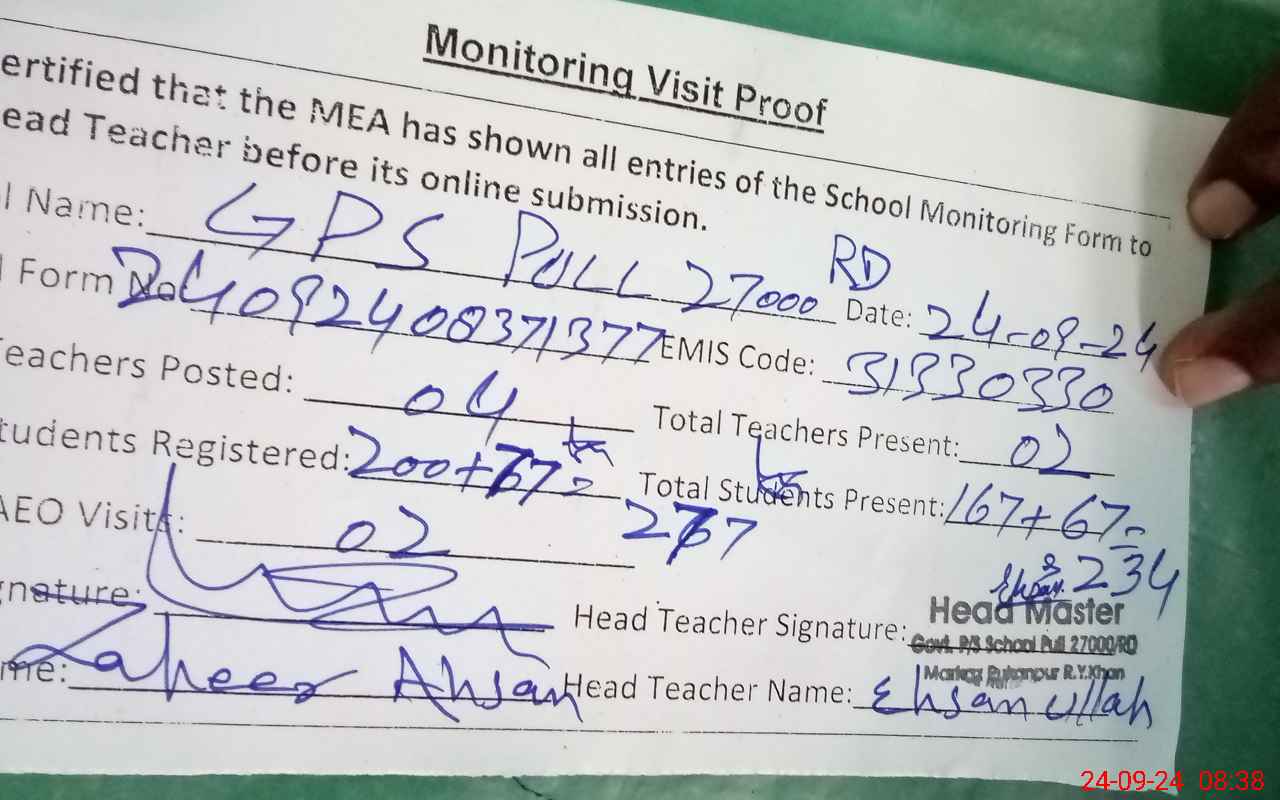 Monitoring Visit Proof
ertified that the MEA has shown all entries of the School Monitoring Form to
ead Teacher before its online submission.
l Name: GPS PULL 27000 RD Date: 24-09-24
l Form No: 24092408371377 EMIS Code: 31330330
eachers Posted: 04 Total Teachers Present: 02
tudents Registered: 200+67= 267 Total Students Present: 167+67= 234
AEO Visits: 02
gnature: Head Teacher Signature:
Head Master
Govt. P/S School Pull 27000/RD
Markaz Rukanpur R.Y.Khan
me: Zaheer Ahsan Head Teacher Name: Ehsan ullah
24-09-24 08:38